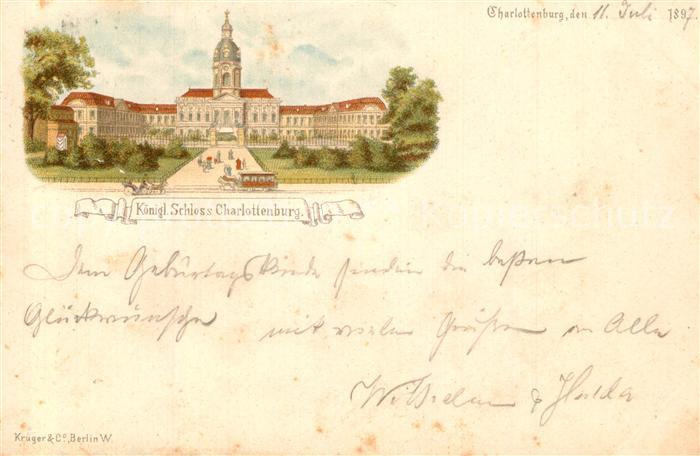 Charlottenburg, den 11. Juli 1897
Königl. Schloss Charlottenburg.
Dem Geburtagskinde senden die beßten
Glückwünsche mit vielen Grüßen an Alle
Wilhelm &
Krüger & Co., Berlin W.